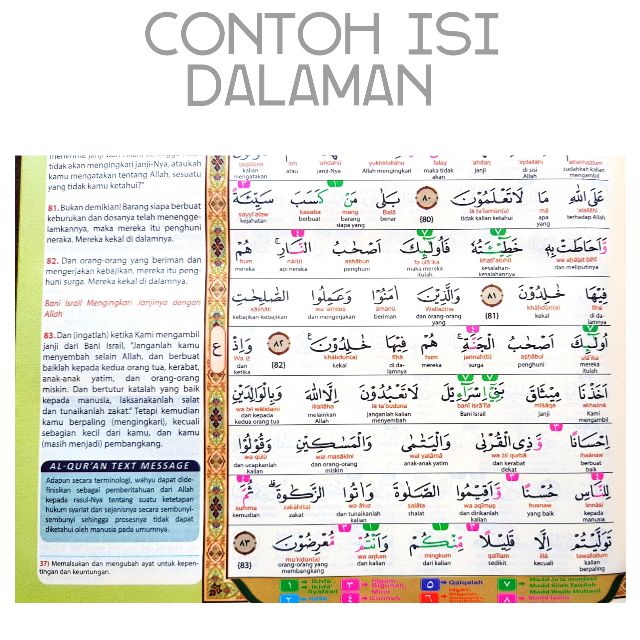 CONTOH ISI
DALAMAN
tidak akan mengingkari janji-Nya, ataukah
kamu mengatakan tentang Allah, sesuatu
yang tidak kamu ketahui?"
81. Bukan demikian! Barang siapa berbuat
keburukan dan dosanya telah menengge-
lamkannya, maka mereka itu penghuni
neraka. Mereka kekal di dalamnya.
82. Dan orang-orang yang beriman dan
mengerjakan kebajikan, mereka itu peng-
huni surga. Mereka kekal di dalamnya.
Bani Israil Mengingkari Janjinya dengan
Allah
83. Dan (ingatlah) ketika Kami mengambil
janji dari Bani Israil, "Janganlah kamu
menyembah selain Allah, dan berbuat
baiklah kepada kedua orang tua, kerabat,
anak-anak yatim, dan orang-orang
miskin. Dan bertutur katalah yang baik
kepada manusia, laksanakanlah salat
dan tunaikanlah zakat." Tetapi kemudian
kamu berpaling (mengingkari), kecuali
sebagian kecil dari kamu, dan kamu
(masih menjadi) pembangkang.
AL-QUR'AN TEXT MESSAGE
Adapun secara terminologi, wahyu dapat dide-
finisikan sebagai pemberitahuan dari Allah
kepada rasul-Nya tentang suatu ketetapan
hukum syariat dan sejenisnya secara sembunyi-
sembunyi sehingga prosesnya tidak dapat
diketahui oleh manusia pada umumnya.
37) Memalsukan dan mengubah ayat untuk kepen-
tingan dan keuntungan.
عَلَى اللّٰهِ مَا لَا تَعْلَمُوْنَ ٨٠ بَلٰى مَنْ كَسَبَ سَيِّئَةً
'alallāhi mā lā ta'lamūn(a) Balā man kasaba sayyi'ataw
terhadap Allah apa yang tidak kalian ketahui (80) Benar barang siapa yang berbuat kejahatan
وَّاَحَاطَتْ بِهٖ خَطِيْۤـَٔتُهٗ فَاُولٰۤىِٕكَ اَصْحٰبُ النَّارِ ۚ هُمْ
wa aḥāṭat bihī khaṭī'atuhū fa ulā'ika aṣḥābun nār(i) hum
dan meliputinya kesalahan-kesalahannya maka mereka itulah penghuni api neraka mereka
فِيْهَا خٰلِدُوْنَ ٨١ وَالَّذِيْنَ اٰمَنُوْا وَعَمِلُوا الصّٰلِحٰتِ
fīhā khālidūn(a) Wallażīna āmanū wa 'amiluṣ ṣāliḥāti
di dalamnya kekal (81) dan orang-orang yang beriman dan mengerjakan kebajikan-kebajikan
اُولٰۤىِٕكَ اَصْحٰبُ الْجَنَّةِ ۚ هُمْ فِيْهَا خٰلِدُوْنَ ٨٢ وَاِذْ
ulā'ika aṣḥābul jannah(ti) hum fīhā khālidūn(a) Wa iż
mereka itulah penghuni surga mereka di dalamnya kekal (82) dan ketika
اَخَذْنَا مِيْثَاقَ بَنِيْٓ اِسْرَاۤءِيْلَ لَا تَعْبُدُوْنَ اِلَّا اللّٰهَ وَبِالْوَالِدَيْنِ
akhażnā mīṡāqa banī isrā'īla lā ta'budūna illallāha wa bil wālidaini
Kami mengambil janji Bani Israil janganlah kalian menyembah melainkan Allah dan kepada kedua orang tua
اِحْسَانًا وَّذِى الْقُرْبٰى وَالْيَتٰمٰى وَالْمَسٰكِيْنِ وَقُوْلُوْا
iḥsānaw wa żil qurbā wal yatāmā wal masākīni wa qūlū
berbuat baik dan kerabat dekat anak-anak yatim dan orang-orang miskin dan ucapkanlah kalian
لِلنَّاسِ حُسْنًا وَّاَقِيْمُوا الصَّلٰوةَ وَاٰتُوا الزَّكٰوةَ ۗ ثُمَّ
linnāsi ḥusnaw wa aqīmuṣ ṣalāta wa ātuz zakāh(ta) ṡumma
kepada manusia yang baik dan dirikanlah kalian shalat dan tunaikanlah kalian zakat kemudian
تَوَلَّيْتُمْ اِلَّا قَلِيْلًا مِّنْكُمْ وَاَنْتُمْ مُّعْرِضُوْنَ ٨٣
tawallaitum illā qalīlam minkum wa antum mu'riḍūn(a)
kalian berpaling kecuali sedikit dari kalian dan kalian orang-orang yang membangkang (83)